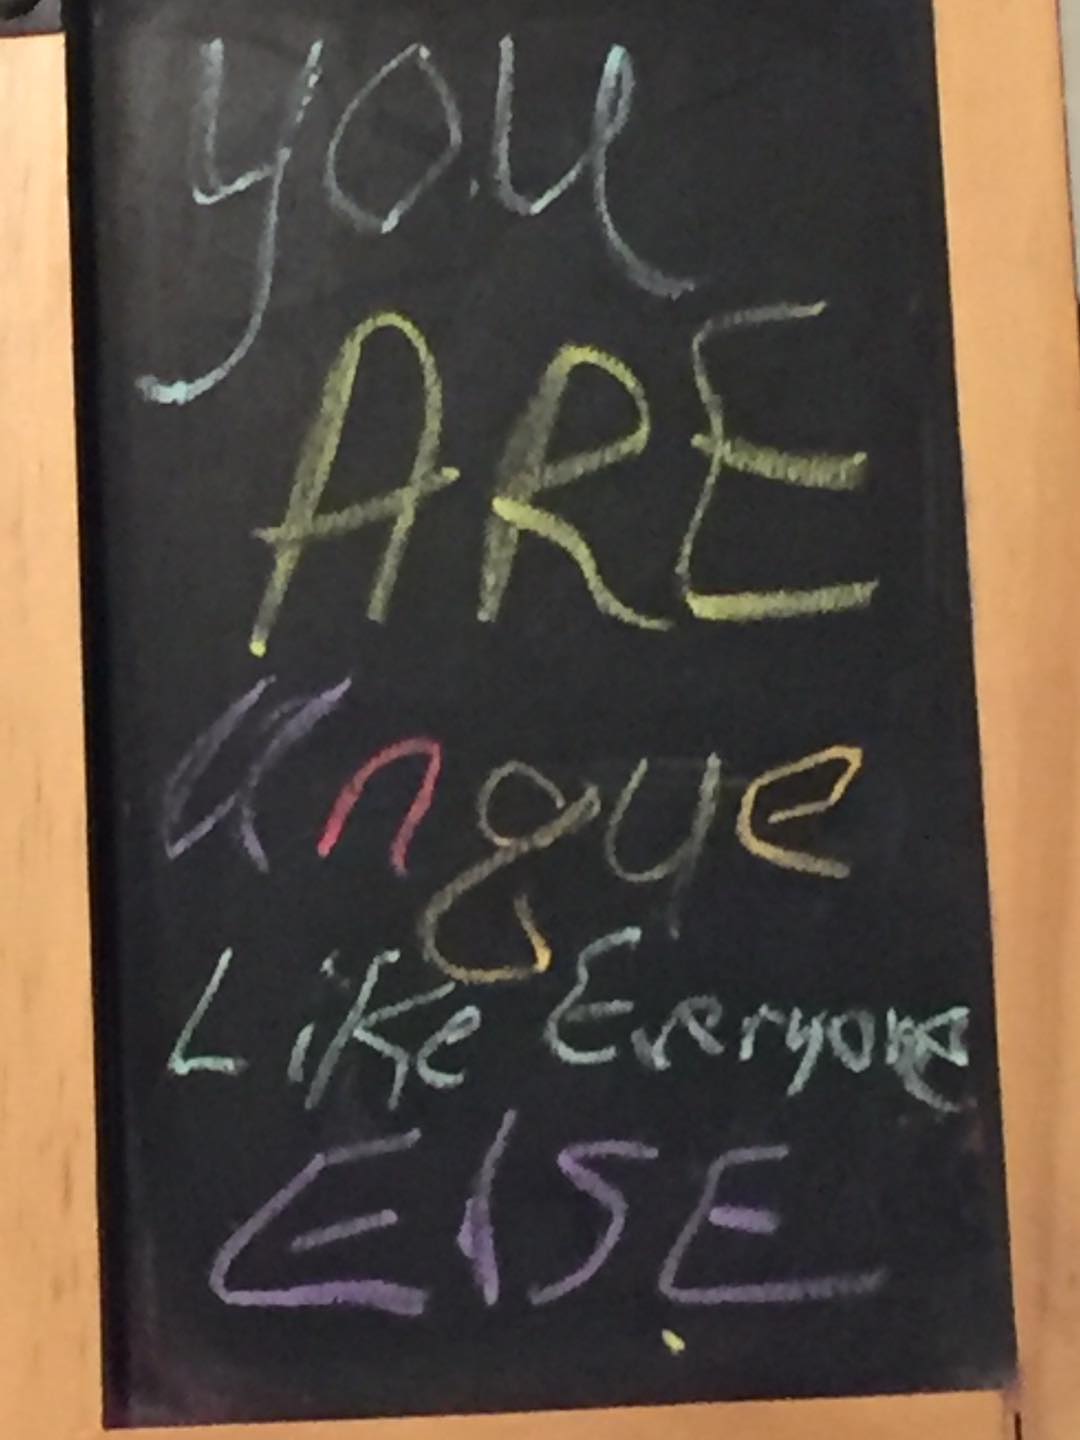 you
ARE
unque
Like Everyone
ElSE